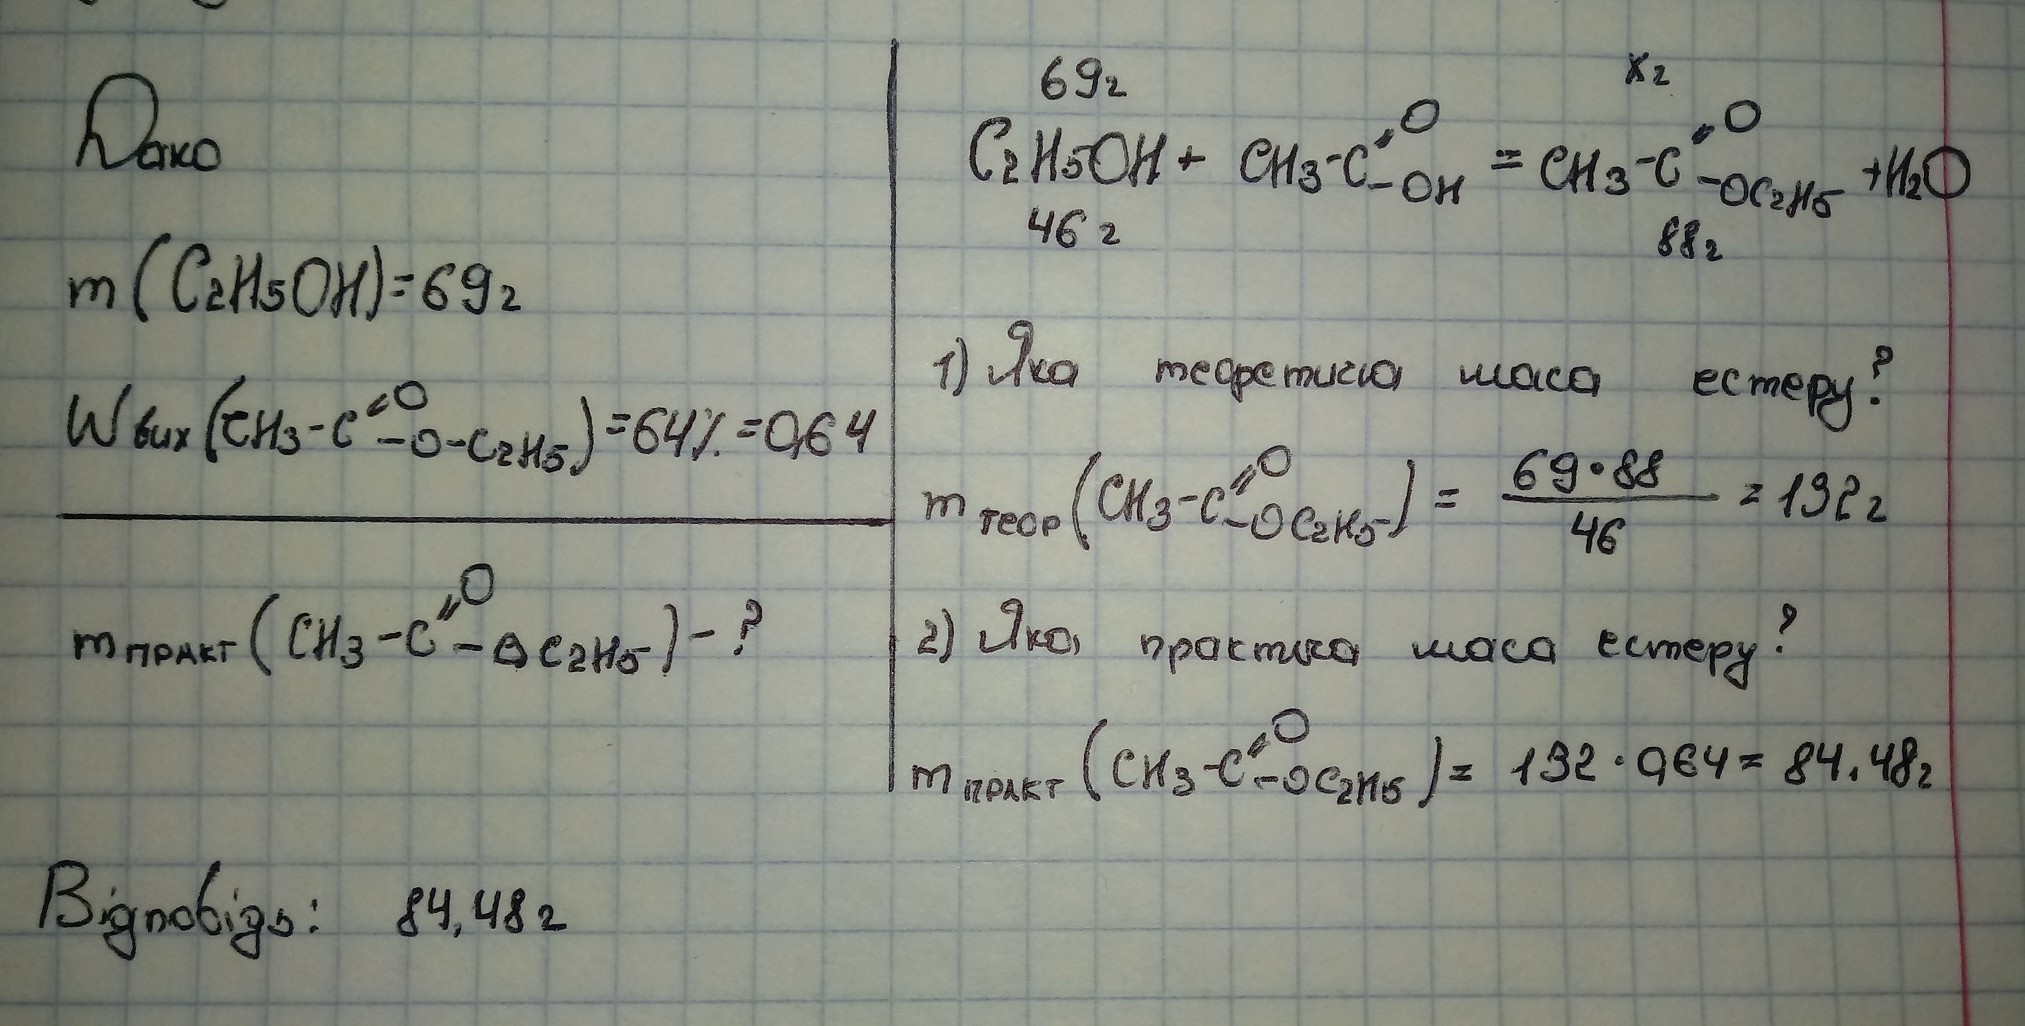 Дано
m(C2H5OH)=69г
Wвих(CH3-C=O-O-C2H5)=64%=0,64
mпракт(CH3-C=O-OC2H5)-?
69г xг
C2H5OH+CH3-C=O-OH=CH3-C=O-OC2H5+H2O
46г 88г
1) Яка теоретична маса естеру?
mтеор(CH3-C=O-OC2H5)=69·88/46=132г
2) Яка практична маса естеру?
mпракт(CH3-C=O-OC2H5)=132·0,64=84.48г
Відповідь: 84,48г